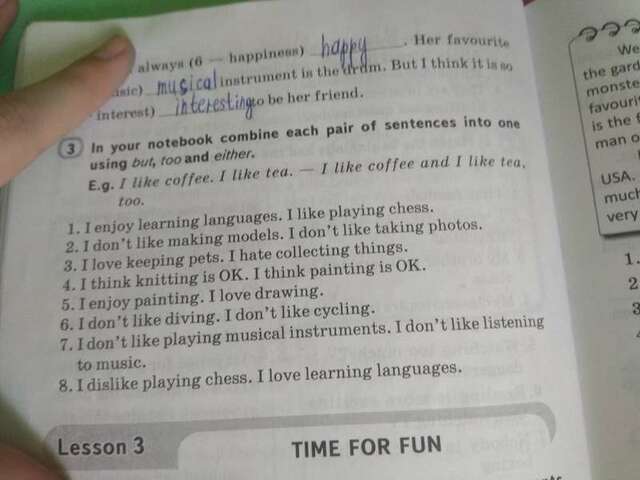 always (6 — happiness) happy. Her favourite
musical instrument is the drum. But I think it is so
interest) interesting to be her friend.
3 In your notebook combine each pair of sentences into one
using but, too and either.
E.g. I like coffee. I like tea. — I like coffee and I like tea,
too.
1. I enjoy learning languages. I like playing chess.
2. I don't like making models. I don't like taking photos.
3. I love keeping pets. I hate collecting things.
4. I think knitting is OK. I think painting is OK.
5. I enjoy painting. I love drawing.
6. I don't like diving. I don't like cycling.
7. I don't like playing musical instruments. I don't like listening
to music.
8. I dislike playing chess. I love learning languages.
Lesson 3 TIME FOR FUN
We
the gard
monste
favouri
is the f
man o
USA.
much
very
1.
2
3